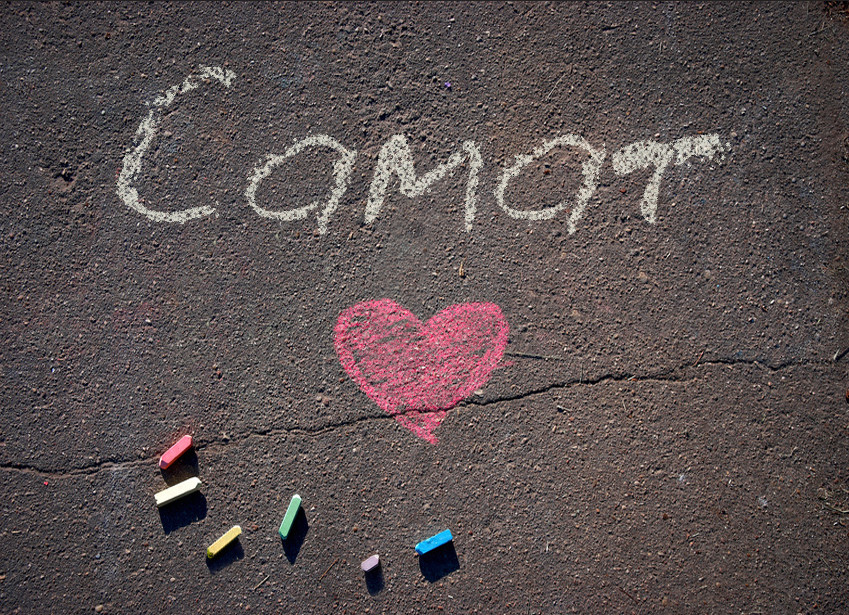 Самат